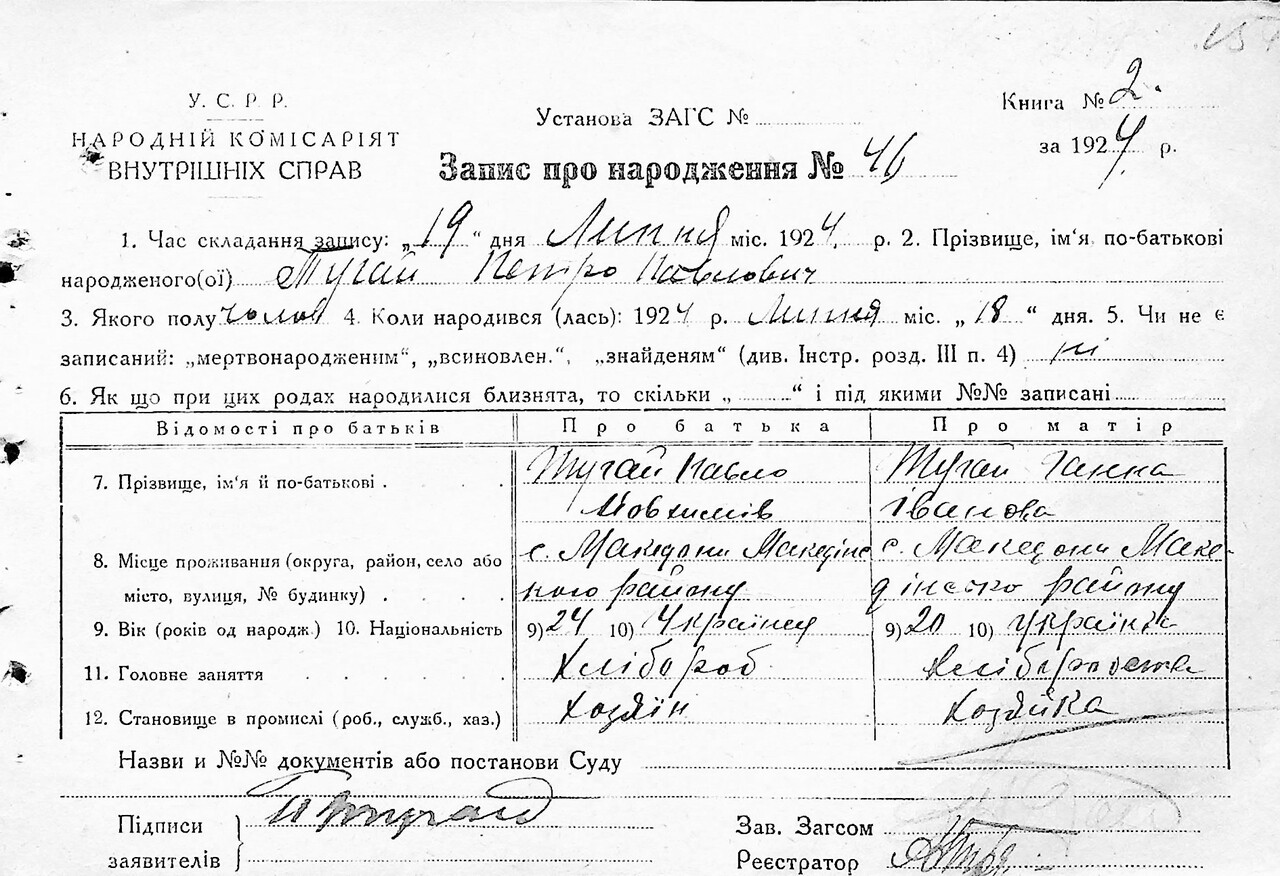 У. С. Р. Р.
НАРОДНІЙ КОМІСАРІЯТ
ВНУТРІШНІХ СПРАВ
Установа ЗАГС №
Книга № 2.
за 1924 р.
Запис про народження № 46
1. Час складання запису: „19“ дня Липня міс. 1924. р. 2. Прізвище, ім'я, по-батькові
народженого(ої) Тугай Петро Павлович
3. Якого полу чолов 4. Коли народився (лась): 1924 р. Липня міс. „18“ дня. 5. Чи не є
записаний: „мертвонародженим“, „всиновлен.“, „знайденям“ (див. Інстр. розд. III п. 4) ні
6. Як що при цих родах народилися близнята, то скільки „ “ і під якими №№ записані
Відомості про батьків Про батька Про матір
7. Прізвище, ім'я й по-батькові . . . Тугай Павло Тугай Ганна
Іванова
8. Місце проживання (округа, район, село або с. Македони Македінс с. Македони Маке-
місто, вулиця, № будинку) . . . . кого району дінсько району
9. Вік (років од народж.) 10. Національність 9) 24 10) Українец 9) 20 10) Українка
11. Головне заняття . . . . . Хлібороб
12. Становище в промислі (роб., служб., хаз.) Хозяїн Хозяйка
Назви и №№ документів або постанови Суду
Підписи
заявителів
Зав. Загсом
Реєстратор